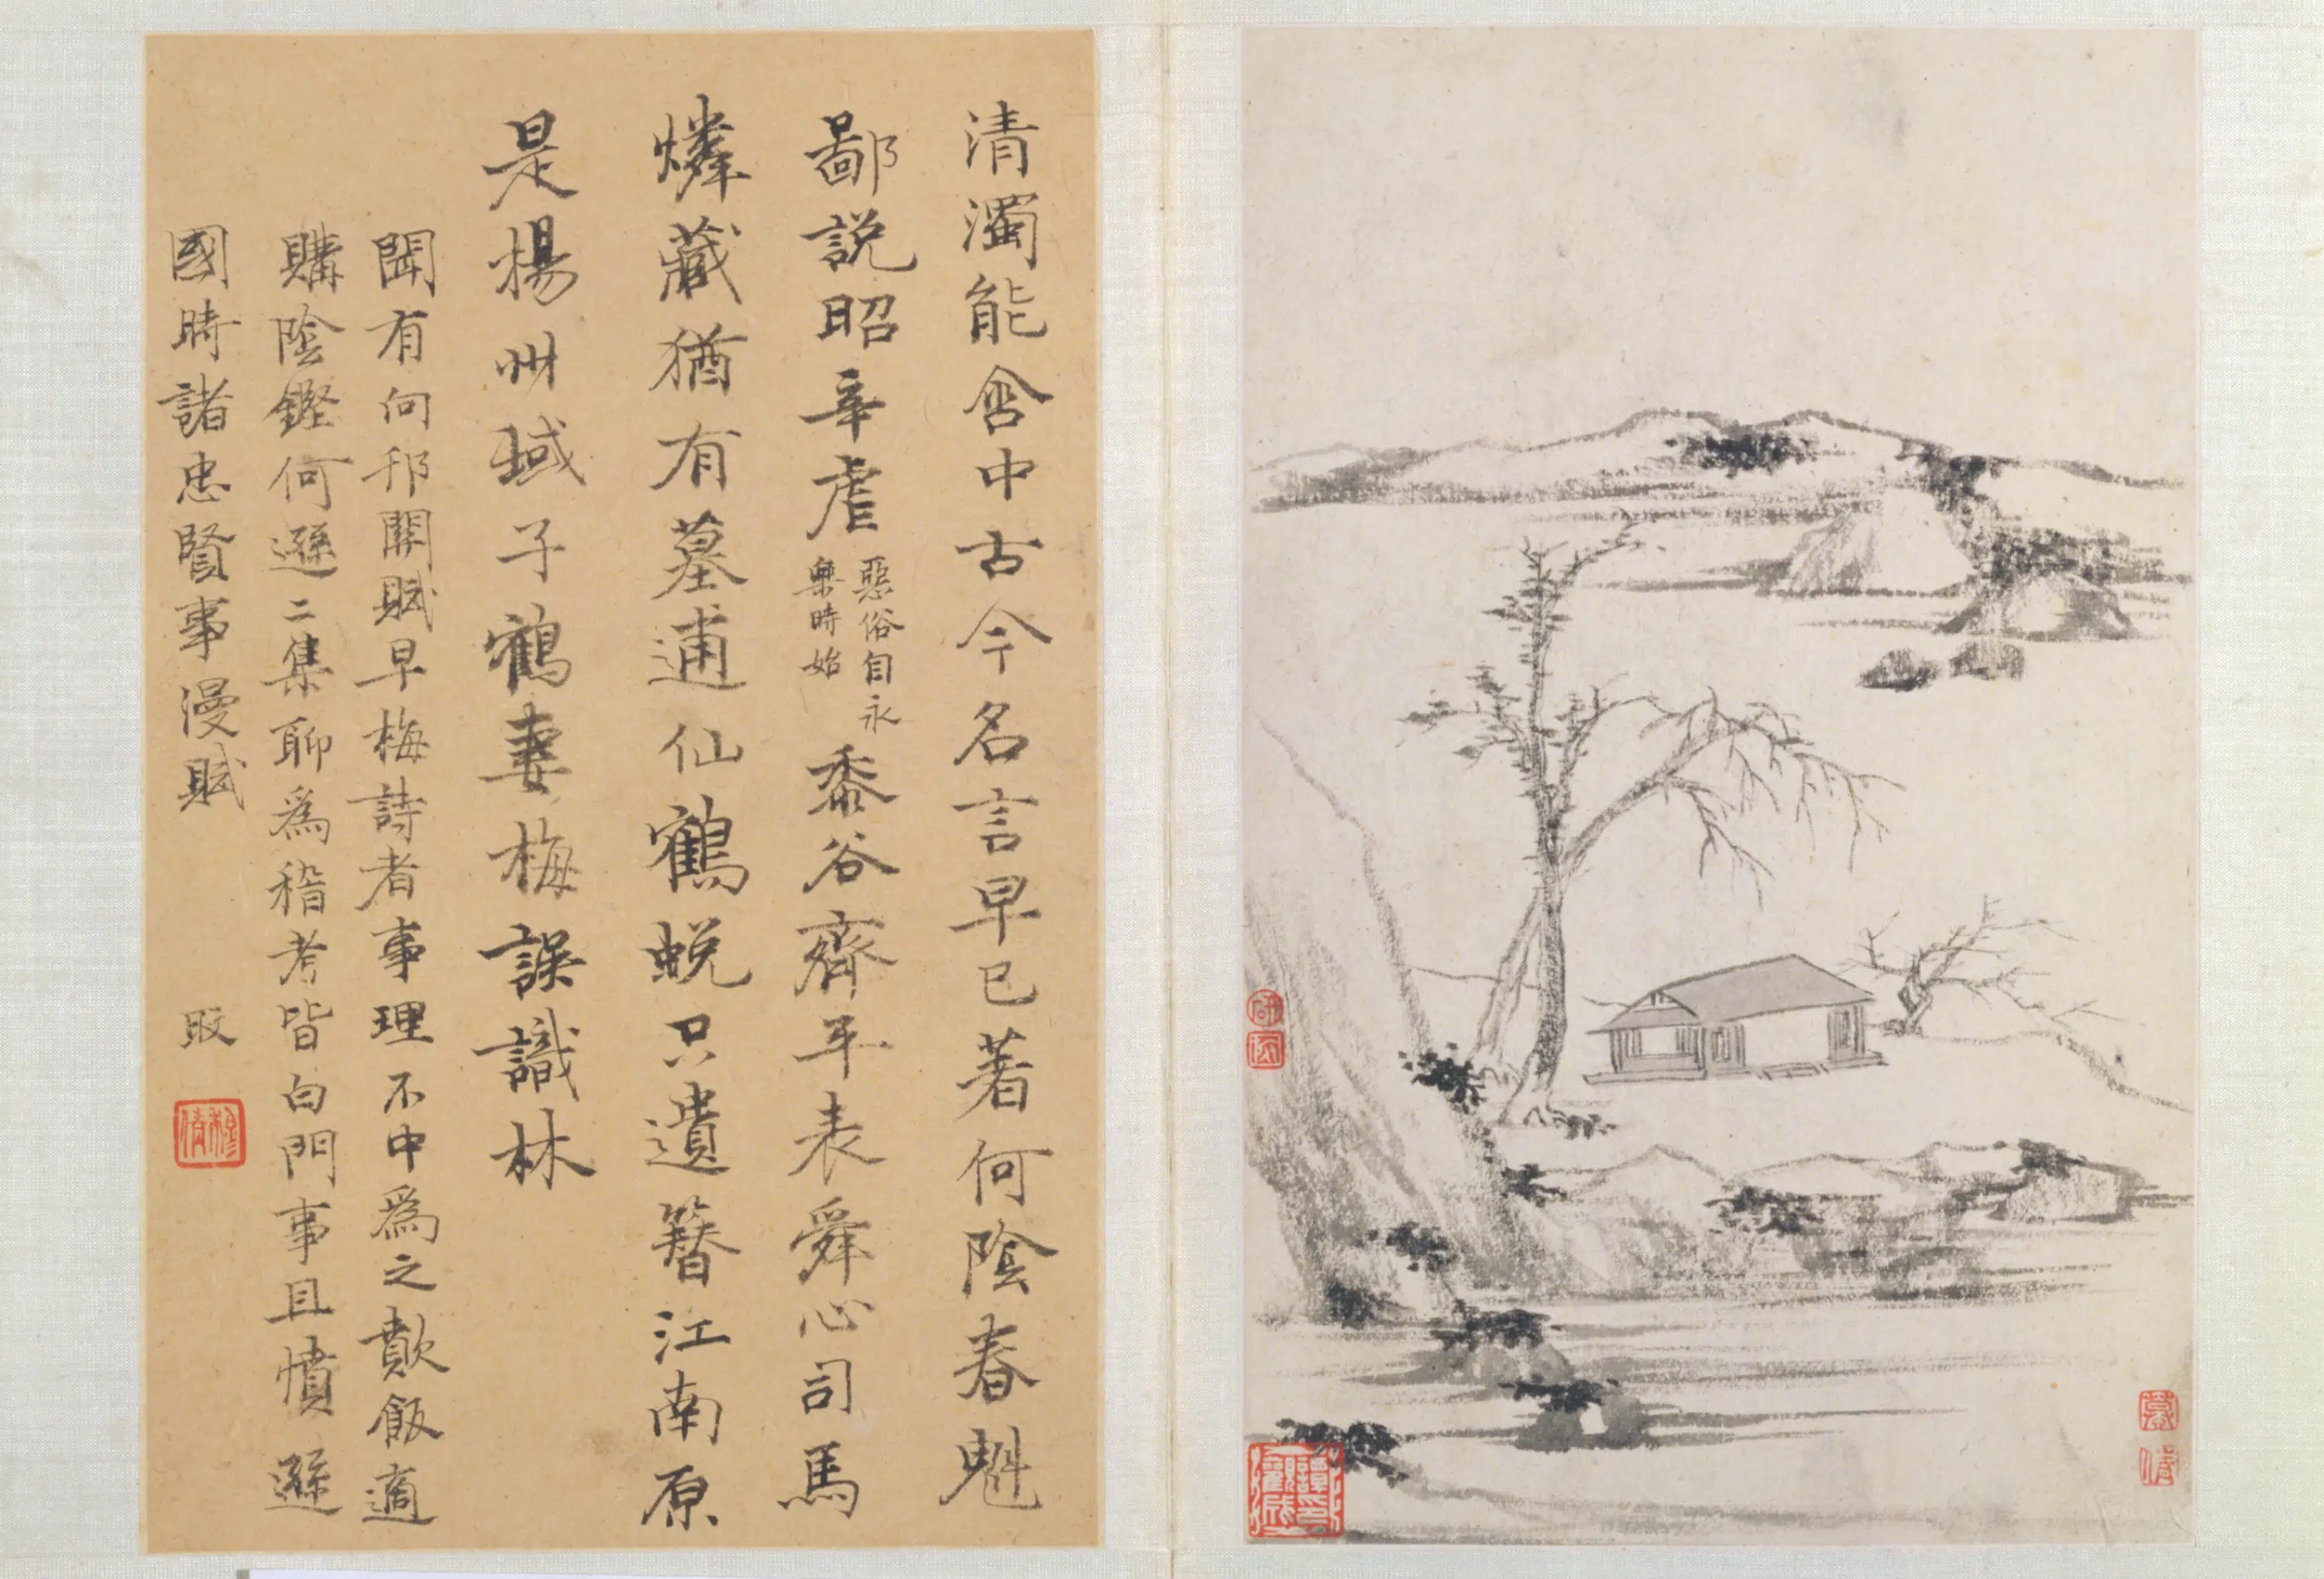 清濁能含中古今名言早已著何陰春魁
鄙說昭辛虐惡俗自永樂時始黍谷齊平表舜心司馬
燐藏猶有墓逋仙鶴蛻只遺簪江南原
是楊州域子鶴妻梅誤識林
聞有向邗關賦早梅詩者事理不中為之歕飯適
購陰鏗何遜二集聊為稽考皆白門事且憤遜
國時諸忠賢事漫賦